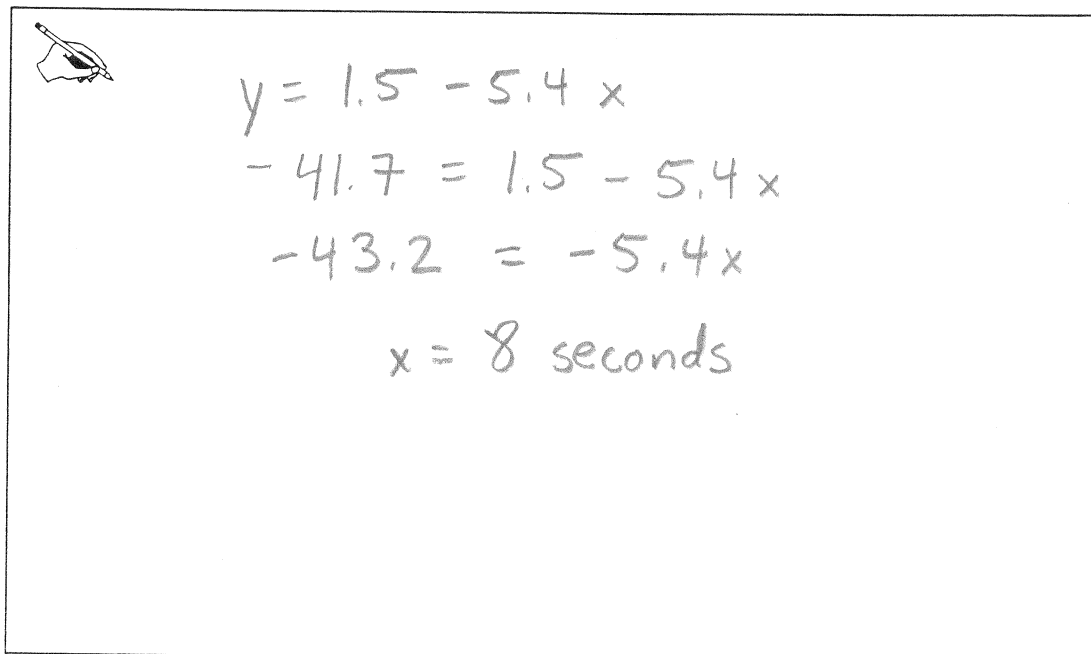 y = 1.5 - 5.4 x
- 41.7 = 1.5 - 5.4 x
- 43.2 = - 5.4 x
x = 8 seconds